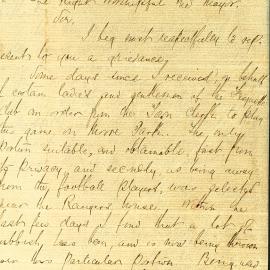 The Right Worshipful the Mayor.
Sir,
I beg most respectfully to rep-
resent to you a grievance.
Some days since I received, on behalf
of certain ladies and gentlemen of the
Club an order from the Town Clerk to play
the game on Moore Park. The only
Portion suitable, and obtainable, apart from
its privacy and security, as being away
from the football players, was selected
near the Rangers House. Within the
last few days I find that a lot of
rubbish, has been, and is now being thrown
on this Particular Portion. Being used